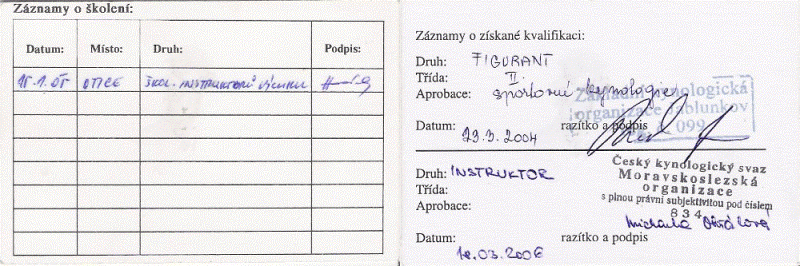 Záznamy o školení:
Datum: Místo: Druh: Podpis:
15.1.05 OTICE ŠKOL. INSTRUKTORŮ VÝCVIKU
Záznamy o získané kvalifikaci:
Druh: FIGURANT
Třída: II.
Aprobace: sportovní kynologie
Základní kynologická
organizace Jablunkov
099
Datum: 29.3.2004 razítko a podpis
Druh: INSTRUKTOR
Třída:
Aprobace:
Český kynologický svaz
Moravskoslezská
organizace
s plnou právní subjektivitou pod číslem
834
Michaela
Datum: 12.03.2006 razítko a podpis